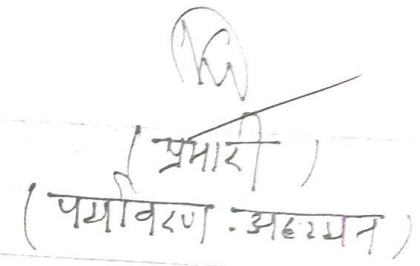 (प्रभारी)
(पर्यावरण अध्ययन)